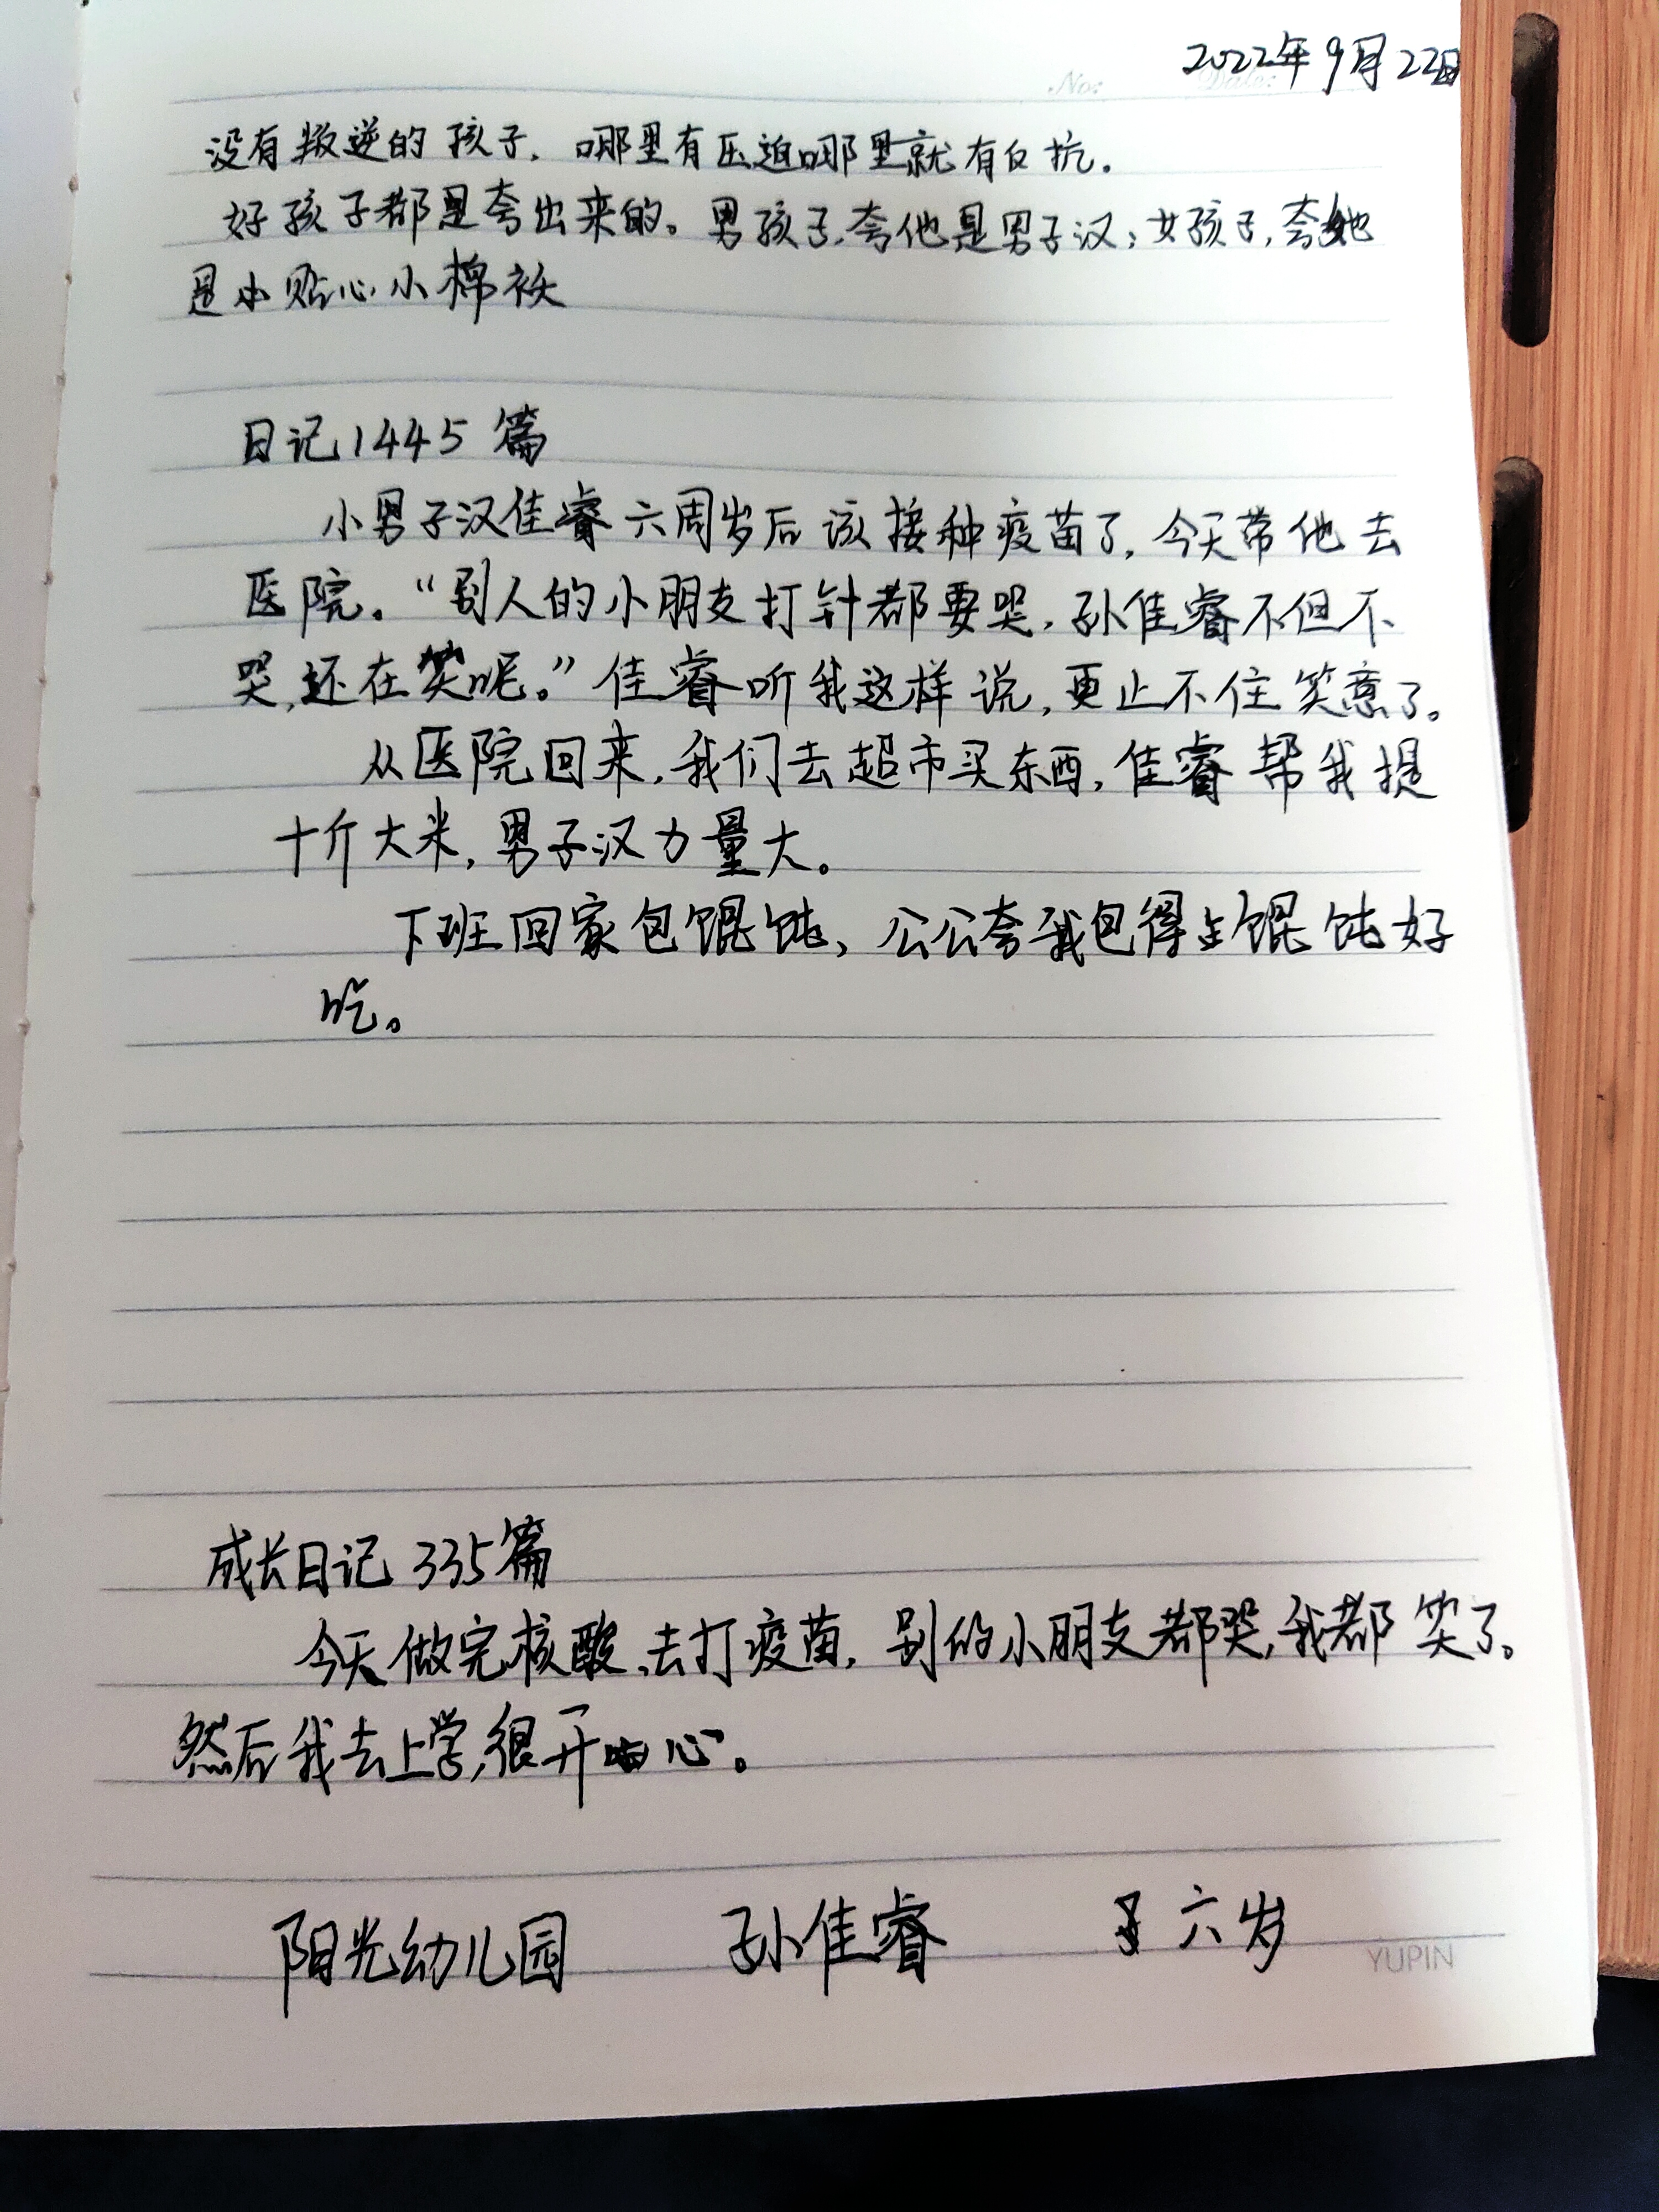 2022年9月22日
No: Date:
没有叛逆的孩子，哪里有压迫哪里就有反抗。
好孩子都是夸出来的。男孩子，夸他是男子汉；女孩子，夸她
是小贴心小棉袄
日记1445篇
小男子汉佳睿六周岁后该接种疫苗了，今天带他去
医院。“别人的小朋友打针都要哭，孙佳睿不但不
哭，还在笑呢。”佳睿听我这样说，更止不住笑意了。
从医院回来，我们去超市买东西，佳睿帮我提
十斤大米，男子汉力量大。
下班回家包馄饨，公公夸我包得馄饨好
吃。
成长日记335篇
今天做完核酸、去打疫苗，别的小朋友都哭，我都笑了。
然后我去上学，很开心。
阳光幼儿园 孙佳睿 六岁
YUPIN